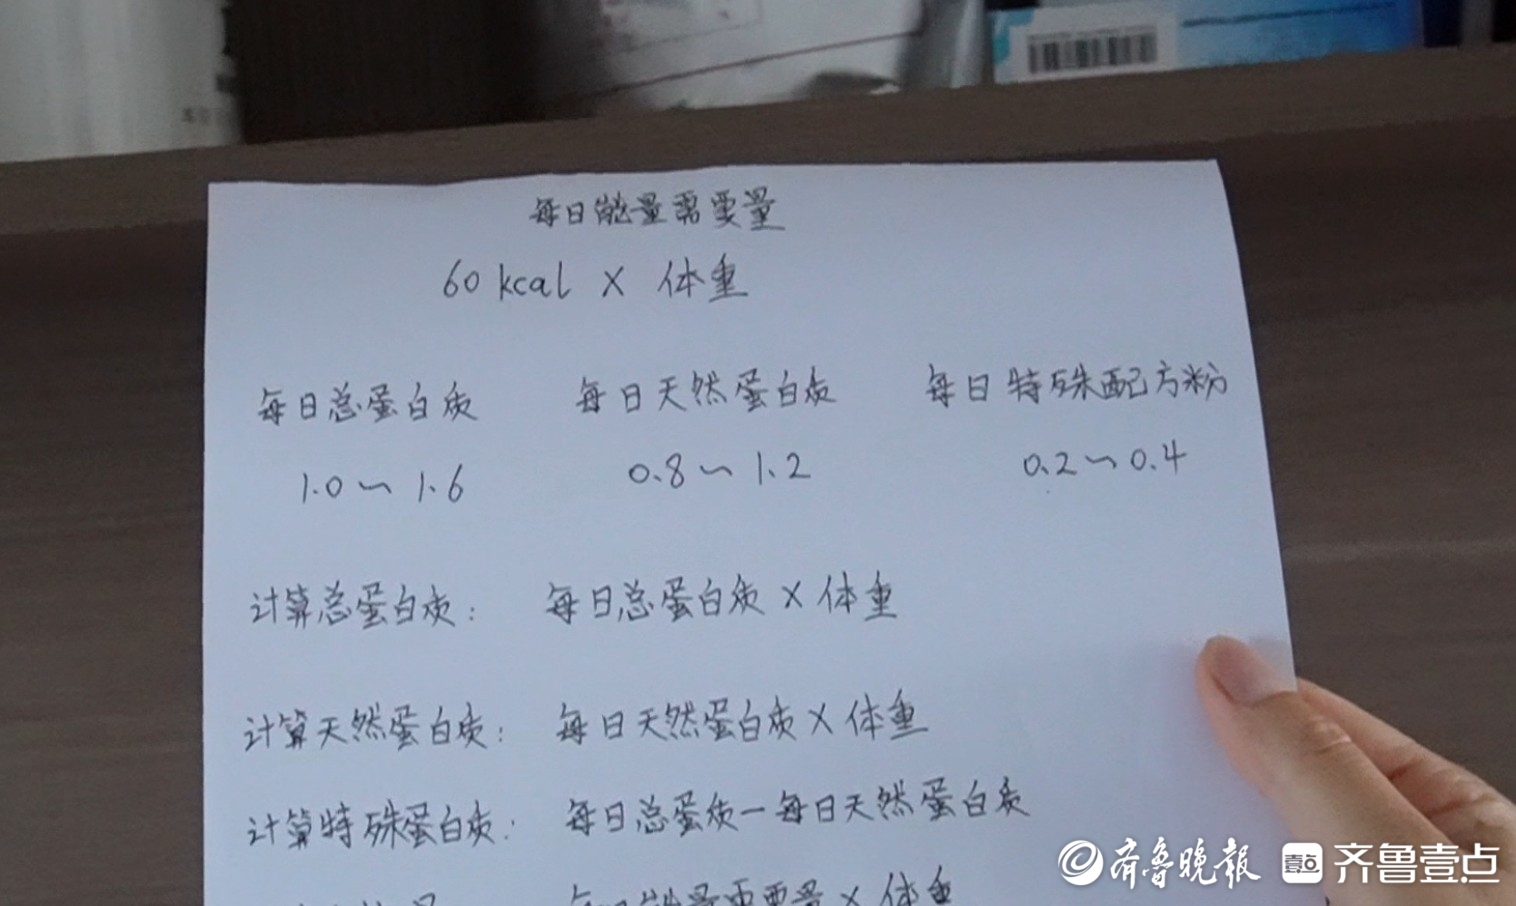 每日能量需要量
60 kcal × 体重
每日总蛋白质 每日天然蛋白质 每日特殊配方粉
1.0~1.6 0.8~1.2 0.2~0.4
计算总蛋白质: 每日总蛋白质×体重
计算天然蛋白质: 每日天然蛋白质×体重
计算特殊蛋白质: 每日总蛋质-每日天然蛋白质
每日能量需要量×体重
齐鲁晚报 壹点 齐鲁壹点